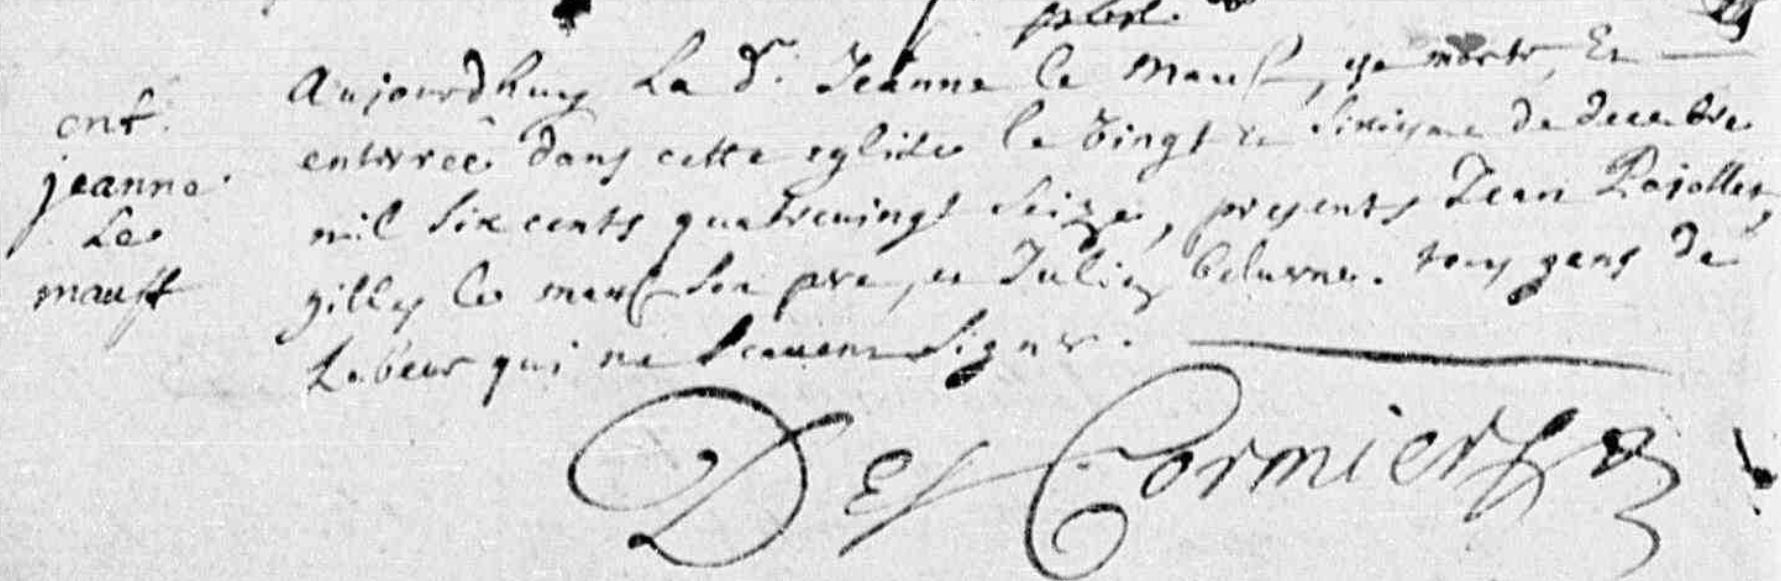 ent.
jeanne
Le
mauff
Aujourdhuy La d. Jeanne le Mauf, est morte, Et
enterreê dans cette eglise le vingt et sixiyme de decembre
mil six cents quatrevingt seize, presents Jean
gilles le mauf son pre, et Julien belurne. tous gens de
Labeur qui ne scavent signer.
Des Cormiers